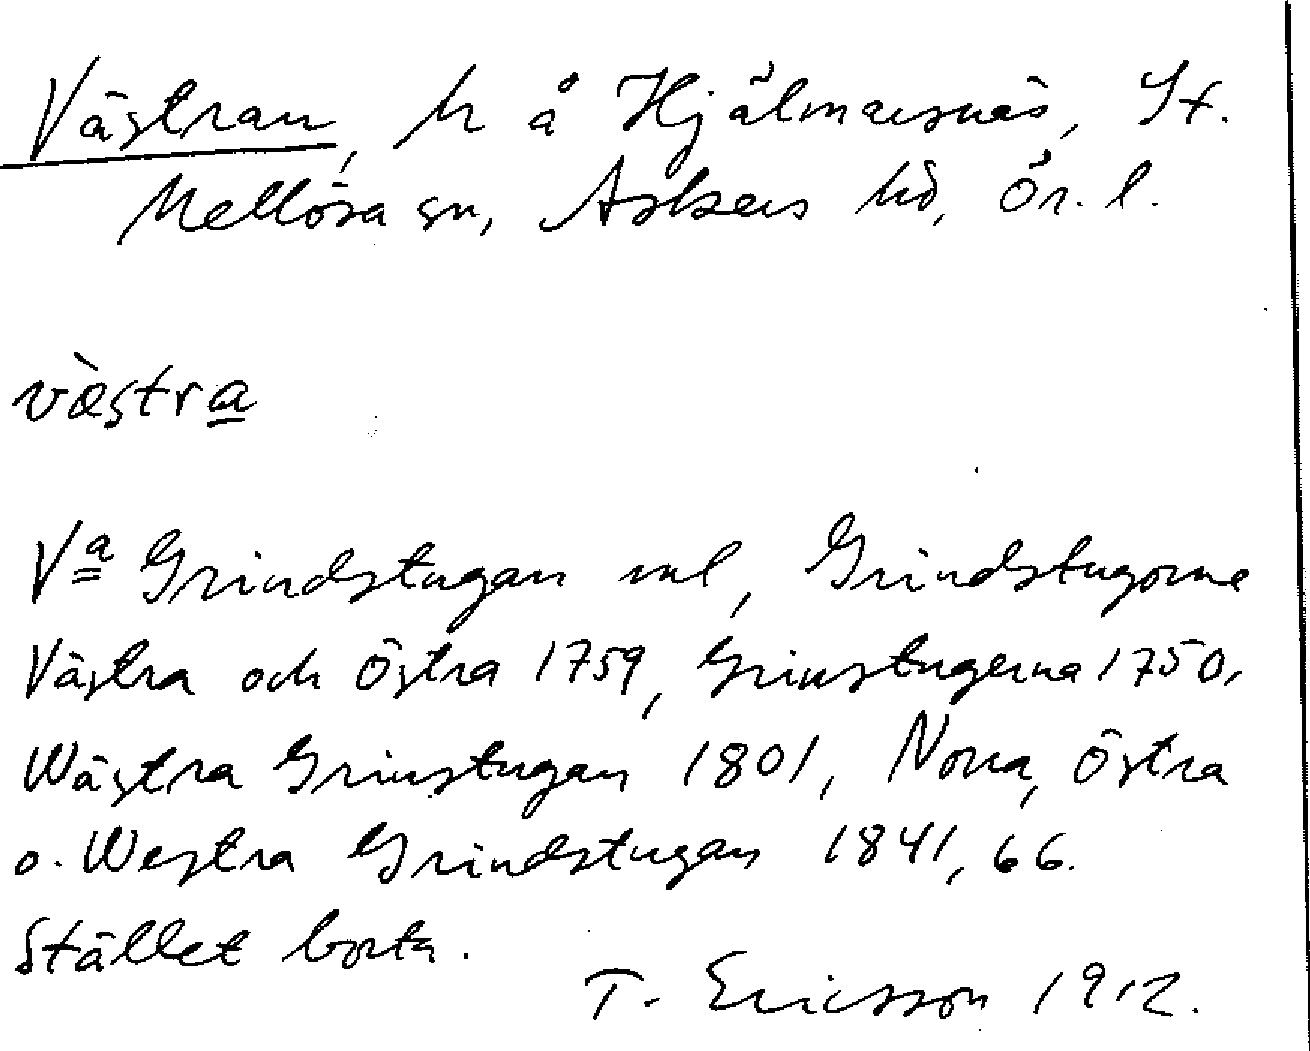 Västran, h å Hjälmarsnäs, St.
Mellösa sn, Askers hd, Ör. l.
vὰstra
Va Grindstugan ml, Grindstugorne
Västra och Östra 1759, Grinstugerna 1750,
Wästra Grinstugan 1801, Norra, Östra
o. Westra Grindstugan 1841, 66.
Stället borta.
T. Ericsson 1912.